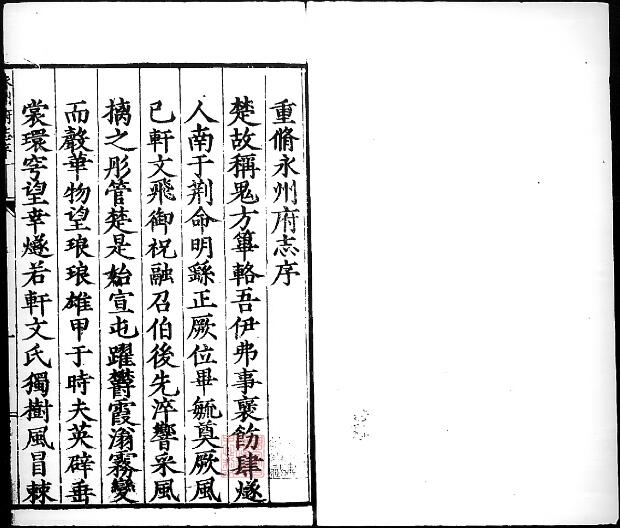 重脩永州府志序
楚故稱鬼方篳輅吾伊弗事褒飭肆燧
人南于荆命明繇正厥位畢毓奠厥風
已軒文飛御祝融召伯後先淬響采風
摛之彤管楚是始宣屯躍欝霞滃霧變
而瞉華物望琅琅雄甲于時夫英辟垂
裳環穹望幸燧若軒文氏獨樹風冒棘